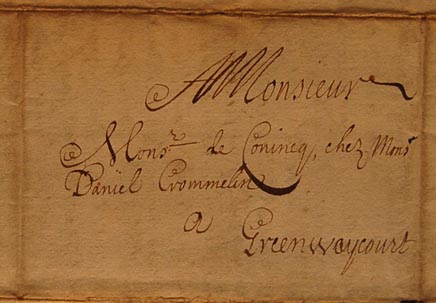 A Monsieur
Monsr de Conincq, chez Monsr
Daniël Crommelin
a
Greenwaycourt